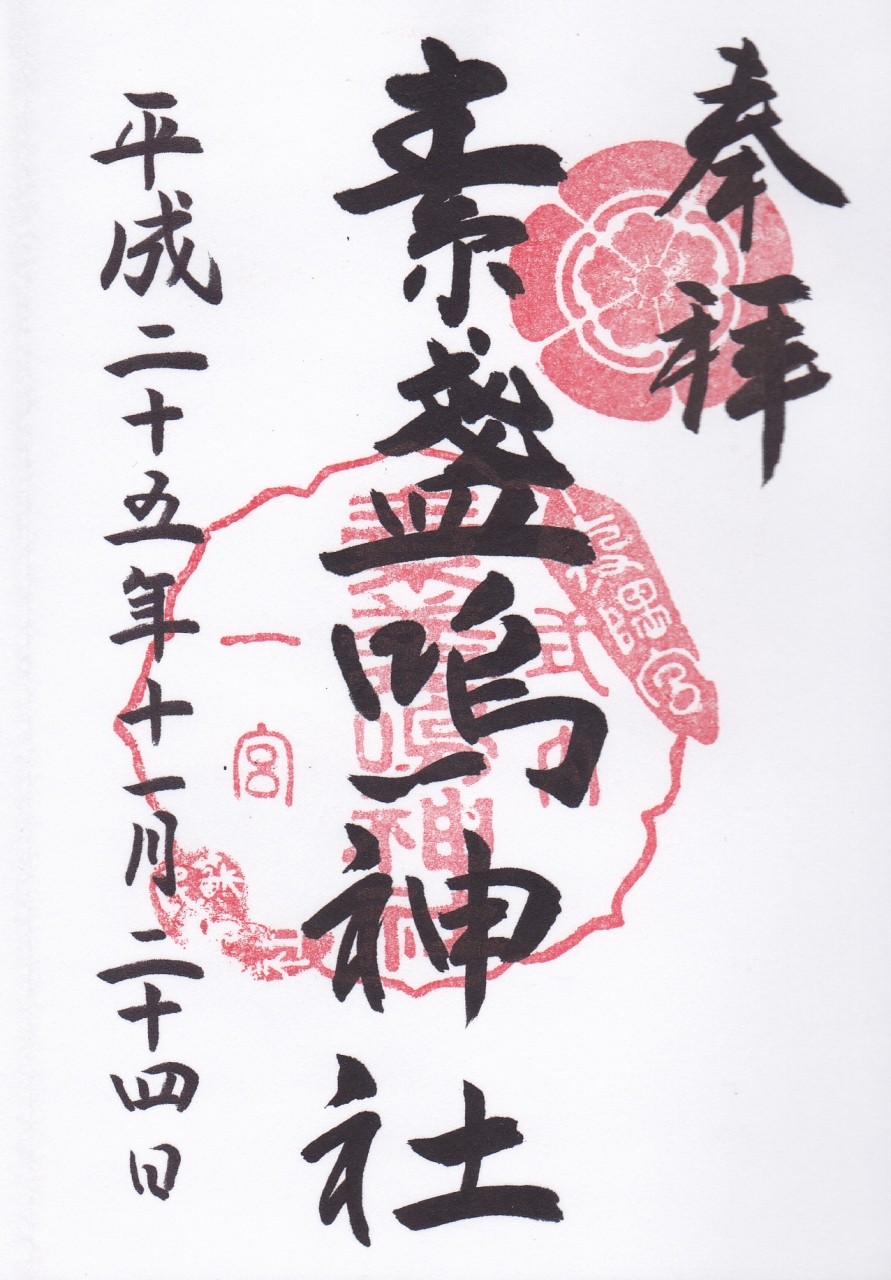 奉拝
素盞嗚神社
平成二十五年十一月二十四日
一宮